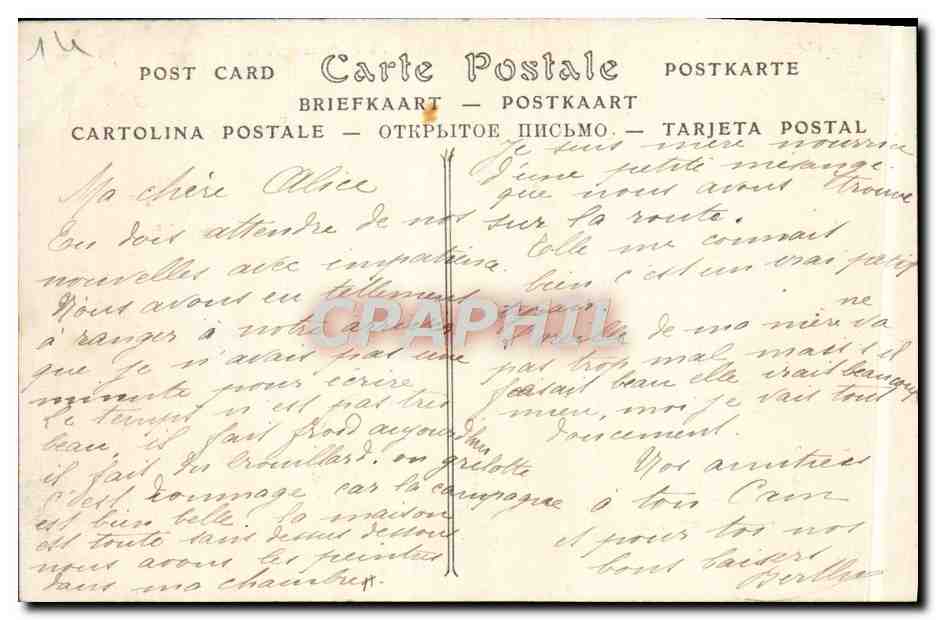 14
POST CARD Carte Postale POSTKARTE
BRIEFKAART — POSTKAART
CARTOLINA POSTALE — ОТКРЫТОЕ ПИСЬМО — TARJETA POSTAL
Ma chère Alice
Tu dois attendre de nos
nouvelles avec impatience.
Nous avons eu tellement
à ranger à notre
que je n'avais pas une
minute pour écrire
Le temps n'est pas très
beau, il fait froid aujourd'hui
il fait du brouillard. on grelotte
C'est dommage car la campagne
est bien belle. la maison
est toute sans dessus dessous
nous avons les peintres
dans ma chambre.
Je suis mère nourrice
d'une petite mésange
que nous avons trouvé
sur la route.
Elle me connait
bien c'est un vrai
de ma mère ne va
pas trop mal, mais s'il
faisait beau elle irait beaucoup
mieu, moi je vais tout
doucement.
Nos amitiés
à ton
et pour toi nos
bons baisers
Berthe
CPAPHIL